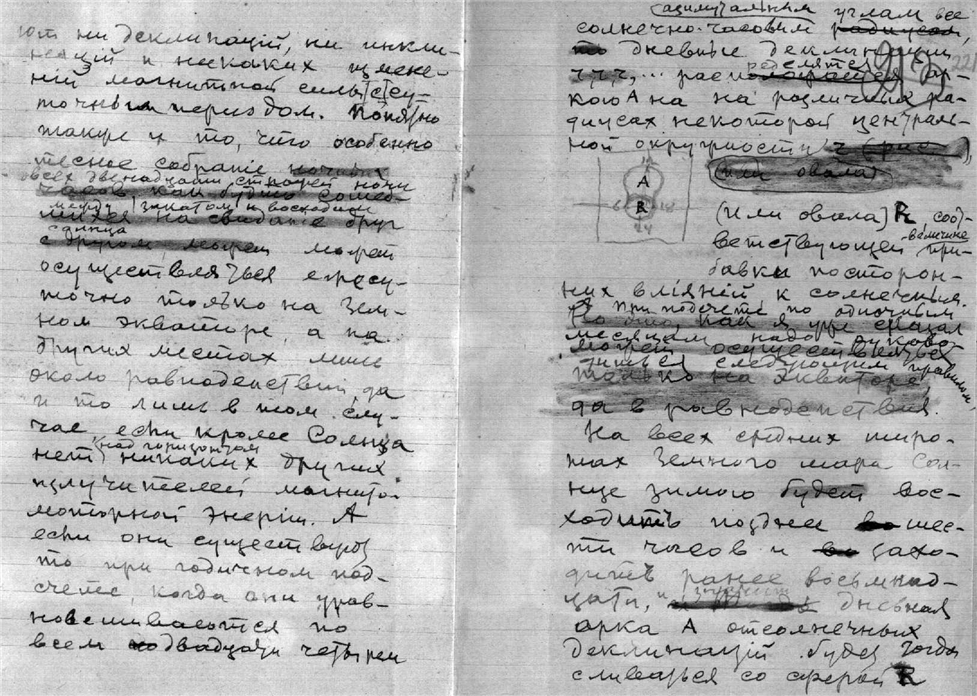 ют ни деклинацій, ни инкли-
націй и никаких измене-
ній магнитной силы с су-
точным периодом. Понятно
также и то, что особенно
тесное собраніе
всех двенадцати стрелок ночи
между закатом и восходом
солнца
может
осуществляться ежесу-
точно только на Зем-
ном экваторе, а на
других местах лишь
около равноденствій, да
и то лишь в том слу-
чае, если кроме Солнца
над горизонтом
нет никаких других
излучителей магнито-
моторной энергіи. А
если они существуют
то при годичном под-
счете, когда они урав-
новешиваются по
всем двадцати четырем
азимутальным углам все
солнечно-часовым
дневные деклинации
ар-
кою А на на различных ра-
диусах некоторой централь-
ной окружности
(или овала)
12
А
6 R 18
24
(или овала) R соот-
ветствующей величине при-
бавки посторон-
них вліяній к солнечным.
При подсчете по одиночным
месяцам надо руково-
диться следующим правилом.
да в равноденствия.
На всех средних широ-
тах Земного шара Сол-
нце зимою будет вос-
ходить позднее шес-
ти часов и захо-
дить ранее восьмнад-
цати, и дневная
арка А отсолнечных
деклинацій будет тогда
сливаться со сферой R